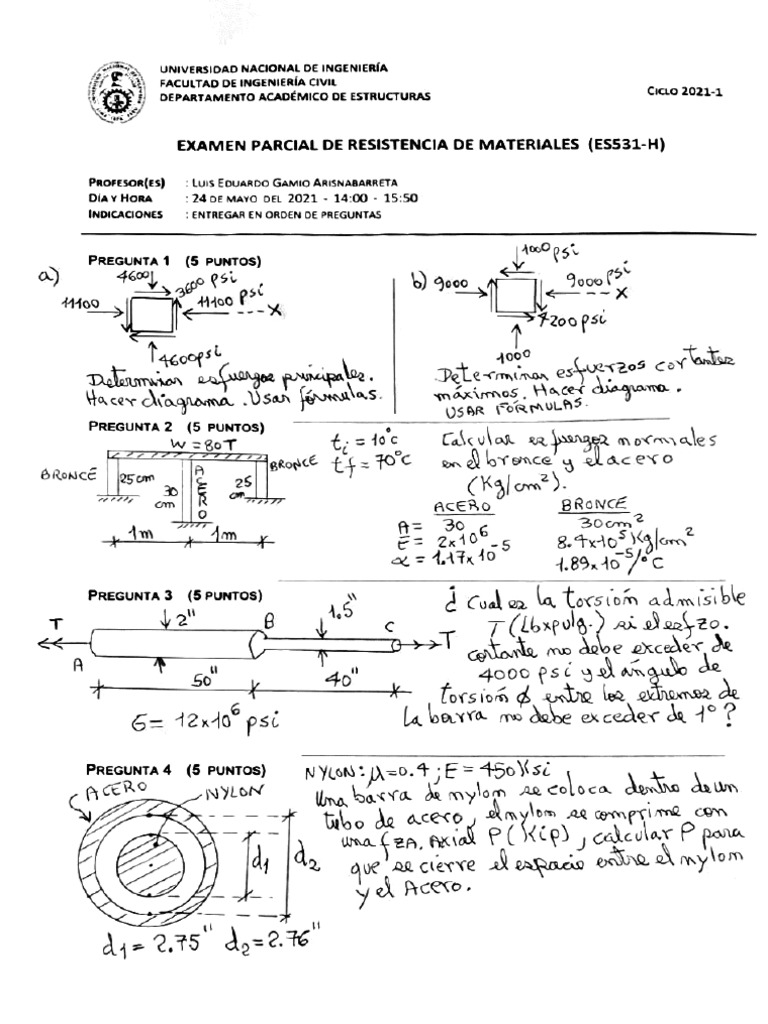 UNIVERSIDAD NACIONAL DE INGENIERÍA
FACULTAD DE INGENIERÍA CIVIL
DEPARTAMENTO ACADÉMICO DE ESTRUCTURAS
CICLO 2021-1
EXAMEN PARCIAL DE RESISTENCIA DE MATERIALES (ES531-H)
PROFESOR(ES) : LUIS EDUARDO GAMIO ARISNABARRETA
DÍA Y HORA : 24 DE MAYO DEL 2021 - 14:00 - 15:50
INDICACIONES : ENTREGAR EN ORDEN DE PREGUNTAS
PREGUNTA 1 (5 PUNTOS)
a)
4600
3600 psi
11100
11100 psi
X
4600psi
Determinar esfuerzos principales.
Hacer diagrama. Usar fórmulas.
b)
1000 psi
9000
9000 psi
X
7200 psi
1000
Determinar esfuerzos cortantes
máximos. Hacer diagrama.
USAR FÓRMULAS.
PREGUNTA 2 (5 PUNTOS)
W = 80T
BRONCE
25cm
30 cm
ACERO
25 cm
BRONCE
1m
1m
ti = 10°c
tf = 70°c
Calcular esfuerzos normales
en el bronce y el acero
(Kg/cm²).
ACERO BRONCE
A = 30 30cm²
E = 2x10⁶ 8.4x10⁵ Kg/cm²
α = 1.17x10⁻⁵ 1.89x10⁻⁵/°C
PREGUNTA 3 (5 PUNTOS)
T
2"
B
1.5"
C
T
A
50"
40"
G = 12x10⁶ psi
¿Cual es la torsión admisible
T (Lbxpulg.) si el esfzo.
cortante no debe exceder de
4000 psi y el ángulo de
torsión ø entre los extremos de
la barra no debe exceder de 1°?
PREGUNTA 4 (5 PUNTOS)
ACERO
NYLON
d1
d2
d1 = 2.75" d2 = 2.76"
NYLON: μ=0.4; E = 450 Ksi
Una barra de nylon se coloca dentro de un
tubo de acero, el nylon se comprime con
una fZA. Axial P (Kip), calcular P para
que se cierre el espacio entre el nylon
y el Acero.